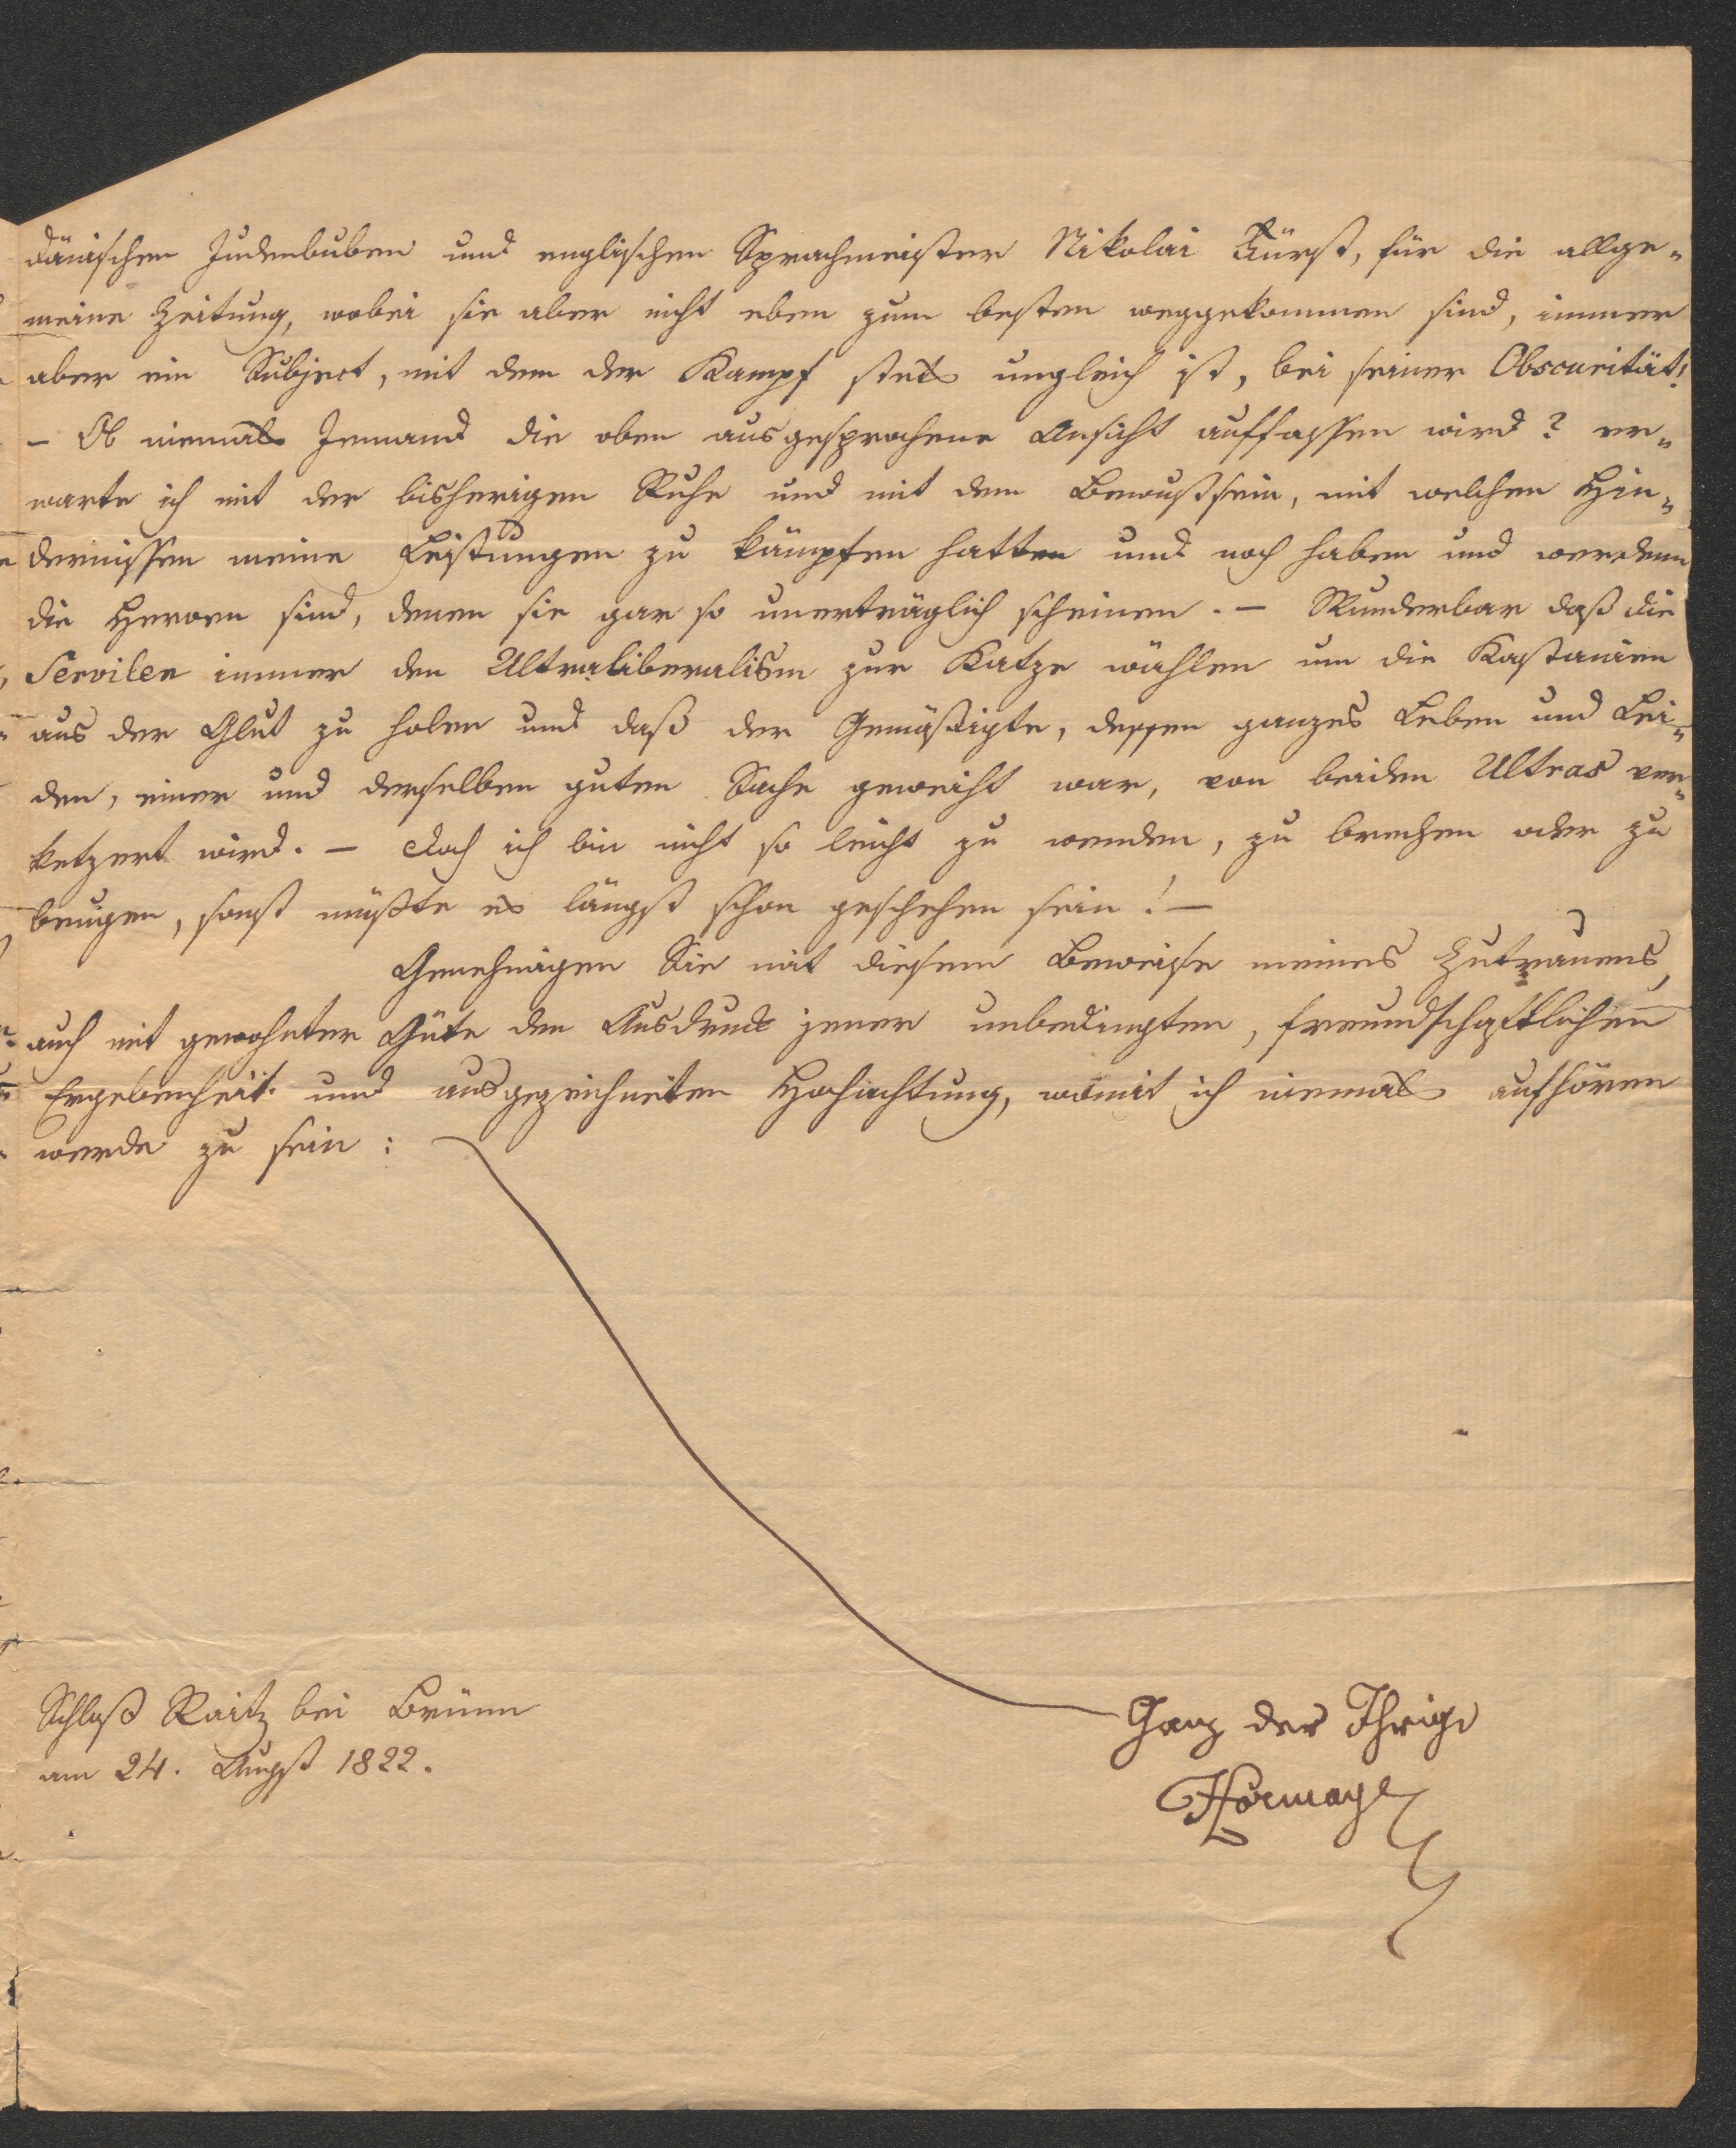 dänischen Judenbuben und englischen Sprachmeister Nikolai Fürst, für die allge„
meine Zeitung, wobei sie aber nicht eben zum besten weggekommen sind, immer
aber ein Subject, mit dem der Kampf stets ungleich ist, bei seiner Obscurität!
– Ob niemals Jemand die oben ausgesprochene Ansicht auffassen wird? er„
warte ich mit der bisherigen Ruhe und mit dem Bewußtsein, mit welchen Hin„
dernissen meine Leistungen zu kämpfen hatten und noch haben und wer denn
die Heroen sind, denen sie gar so unerträglich scheinen. – Wunderbar daß die
Servilen immer den Ultraliberalism zur Katze wählen um die Kastanien
aus der Glut zu holen und daß der Gemäßigte, dessen ganzes Leben und Lei„
den, einer und derselben guten Sache geweiht war, von beiden Ultras ver„
ketzert wird. – Doch ich bin nicht so leicht zu wenden, zu brechen oder zu
beugen, sonst müßte es längst schon geschehen sein! –
Genehmigen Sie mit diesem Beweise meines Zutrauens,
auch mit gewohnter Güte den Ausdruck jener unbedingten, freundschaftlichen
Ergebenheit und ausgezeichneten Hochachtung, womit ich niemals aufhören
werde zu sein:
Schloß Raitz bei Brünn
am 24. Augst 1822.
Ganz der Ihrige
Hormayr